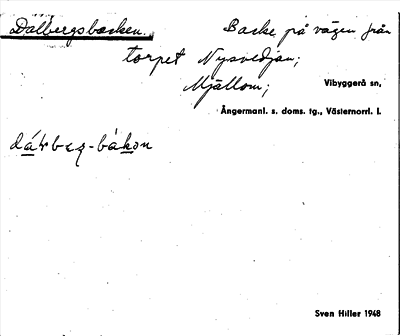 Dalbergsbacken. Backe på vägen från
torpet Nysvedjan;
Mjällom; Vibyggerå sn,
Ångermanl. s. doms. tg., Västernorrl. l.
dárbeg-bákon
Sven Hiller 1948